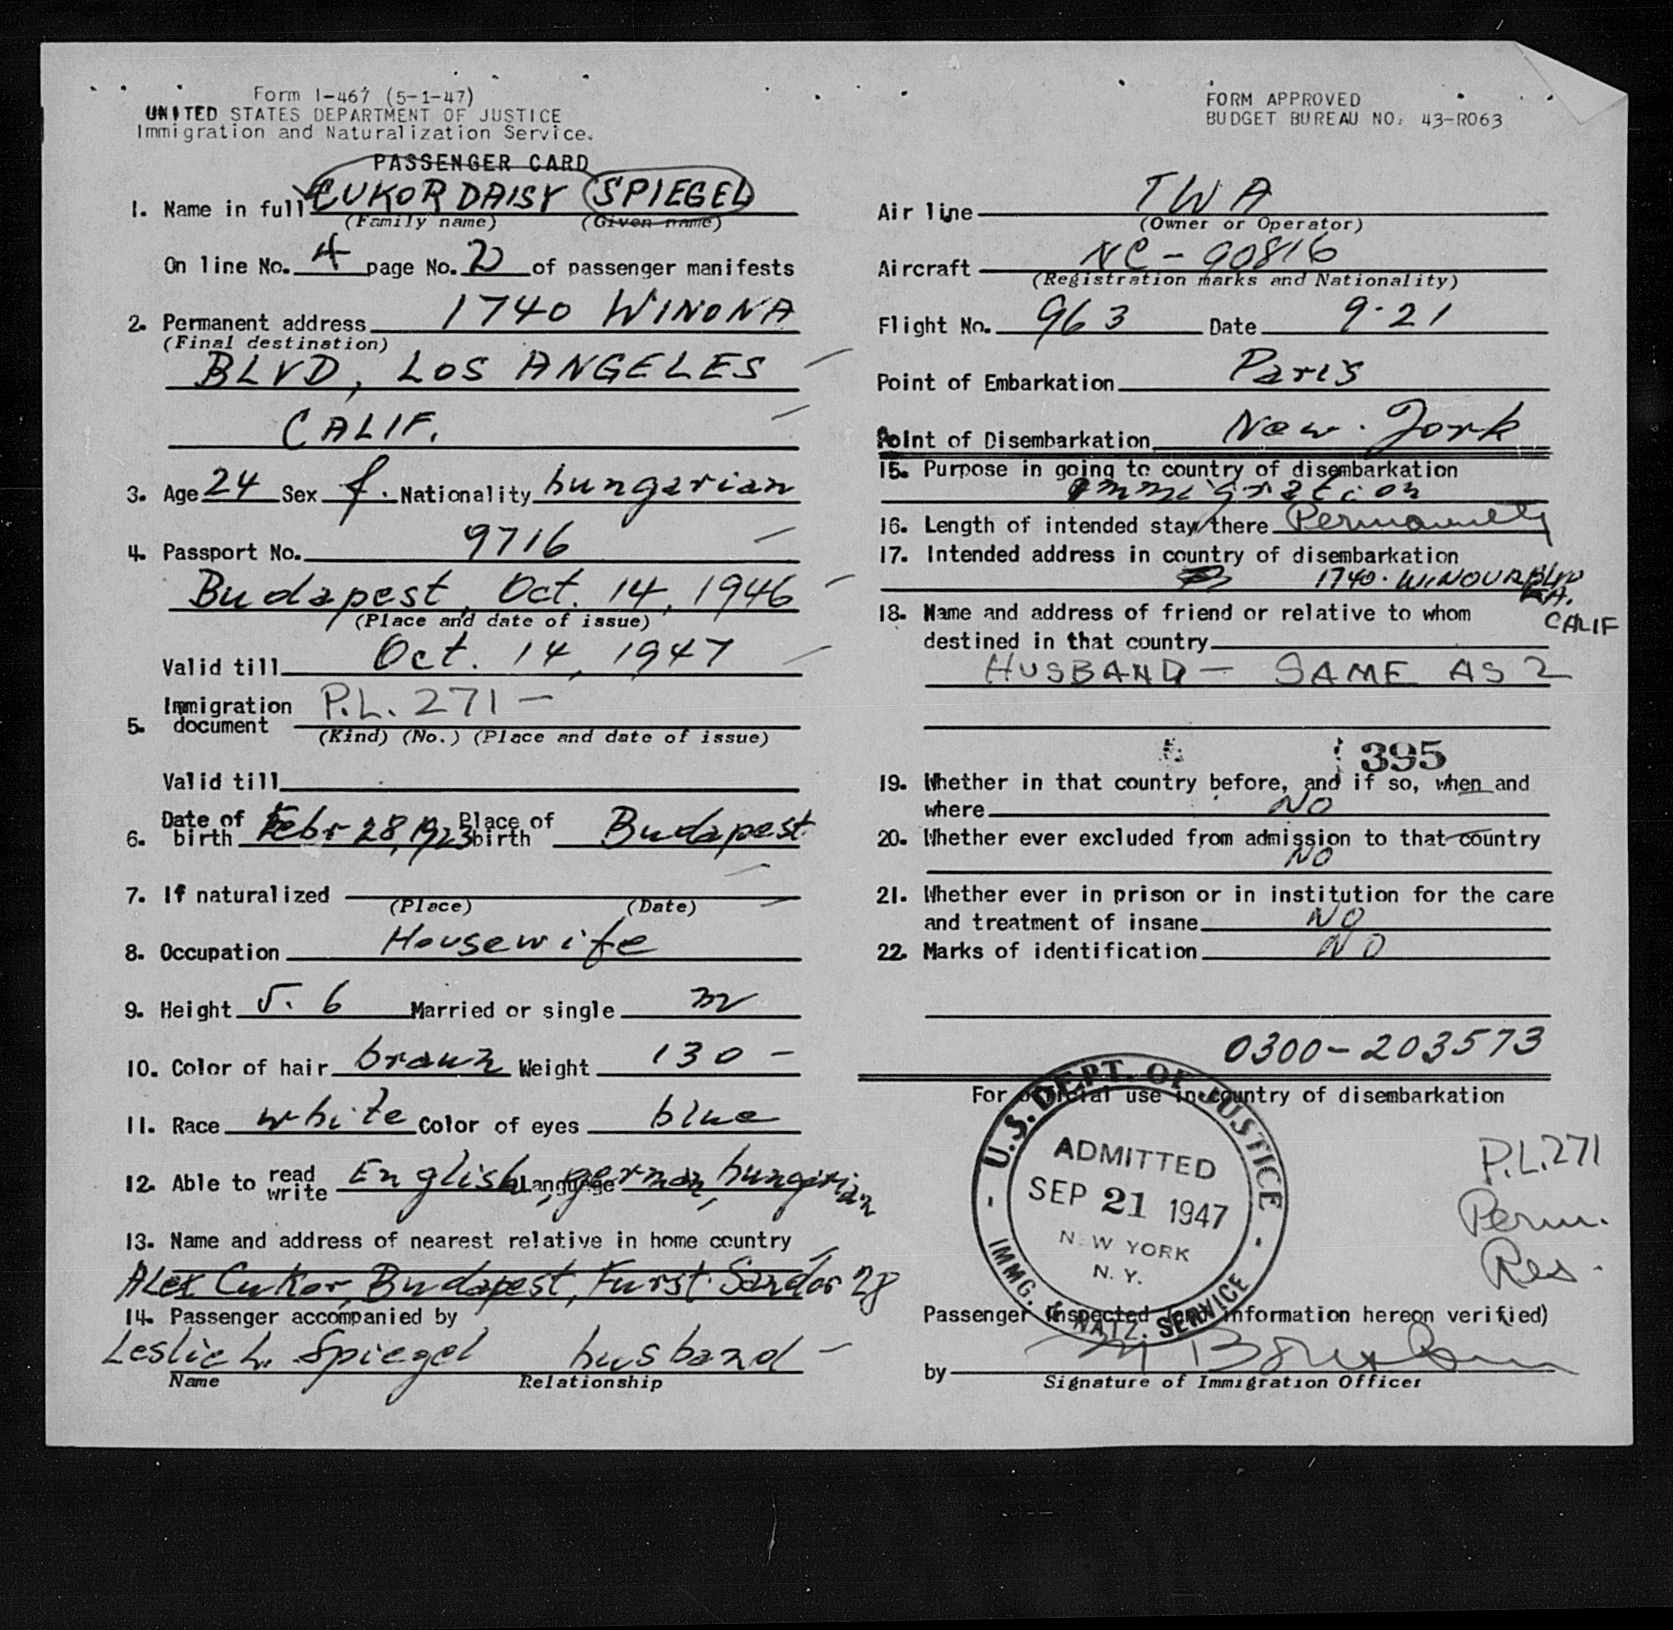 Form I-467 (5-1-47)
UNITED STATES DEPARTMENT OF JUSTICE
Immigration and Naturalization Service.
PASSENGER CARD
1. Name in full CUKOR DAISY SPIEGEL
(Family name) (Given name)
On line No. 4 page No. 2 of passenger manifests
2. Permanent address 1740 WINONA
(Final destination)
BLVD, LOS ANGELES
CALIF.
3. Age 24 Sex f. Nationality hungarian
4. Passport No. 9716
Budapest, Oct. 14, 1946
(Place and date of issue)
Valid till Oct. 14, 1947
5. Immigration document P.L. 271 —
(Kind) (No.) (Place and date of issue)
Valid till
6. Date of birth Febr 28, 1923 Place of birth Budapest
7. If naturalized
(Place) (Date)
8. Occupation Housewife
9. Height 5. 6 Married or single m
10. Color of hair braun Weight 130 —
11. Race white Color of eyes blue
12. Able to read write English, Language german, hungarian
13. Name and address of nearest relative in home country
Alex Cukor, Budapest, Furst Sandor 28
14. Passenger accompanied by
Leslie L. Spiegel husband —
Name Relationship
FORM APPROVED
BUDGET BUREAU NO. 43-R063
Air line TWA
(Owner or Operator)
Aircraft NC - 90816
(Registration marks and Nationality)
Flight No. 963 Date 9-21
Point of Embarkation Paris
Point of Disembarkation New. York
15. Purpose in going to country of disembarkation
immigration
16. Length of intended stay there Permanently
17. Intended address in country of disembarkation
1740. WINOUR BLVD
LA.
CALIF
18. Name and address of friend or relative to whom
destined in that country
HUSBAND — SAME AS 2
395
19. Whether in that country before, and if so, when and
where NO
20. Whether ever excluded from admission to that country
NO
21. Whether ever in prison or in institution for the care
and treatment of insane NO
22. Marks of identification NO
0300-203573
For official use in country of disembarkation
U.S. DEPT. OF JUSTICE
ADMITTED
SEP 21 1947
NEW YORK
N. Y.
IMMG. & NATZ. SERVICE
P.L.271
Perm.
Res.
Passenger inspected (and information hereon verified)
by
Signature of Immigration Officer